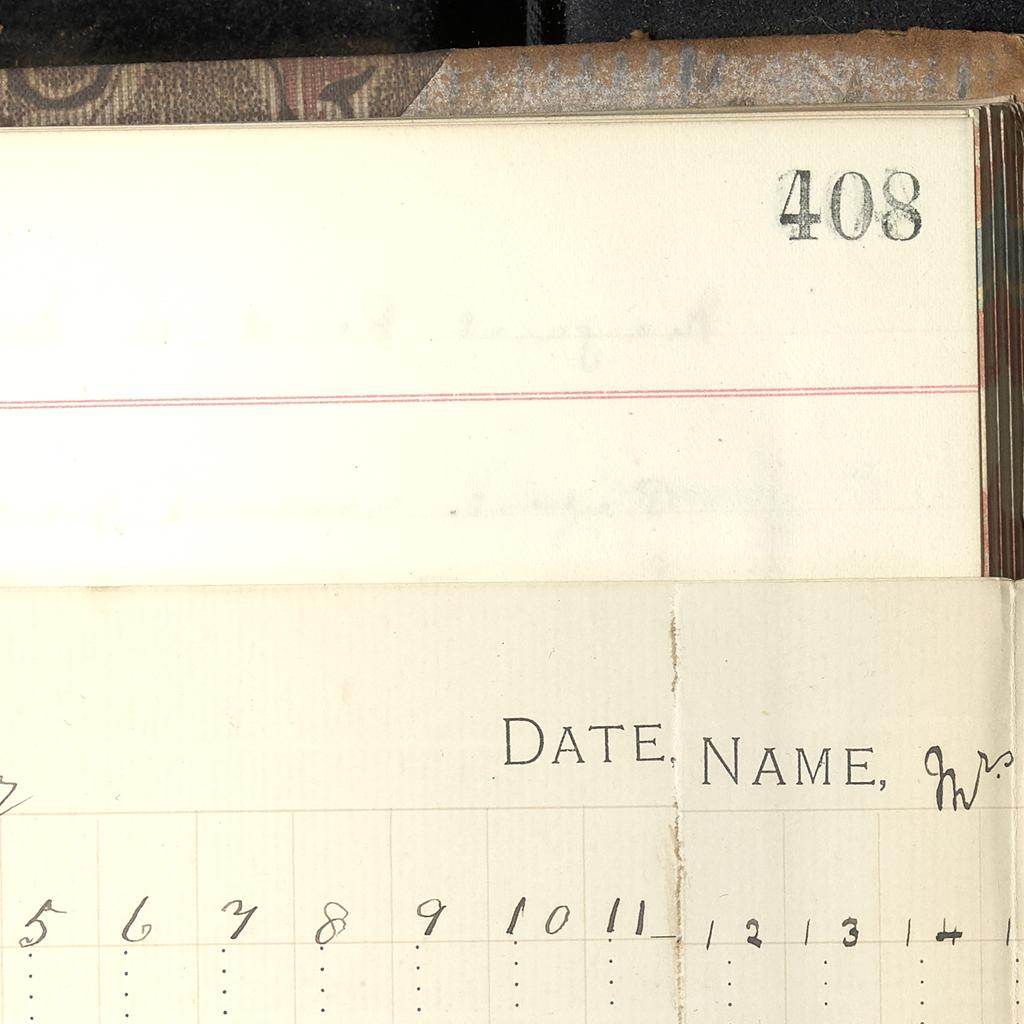 408
DATE.
NAME, Mrs.
5 6 7 8 9 10 11 12 13 14 1